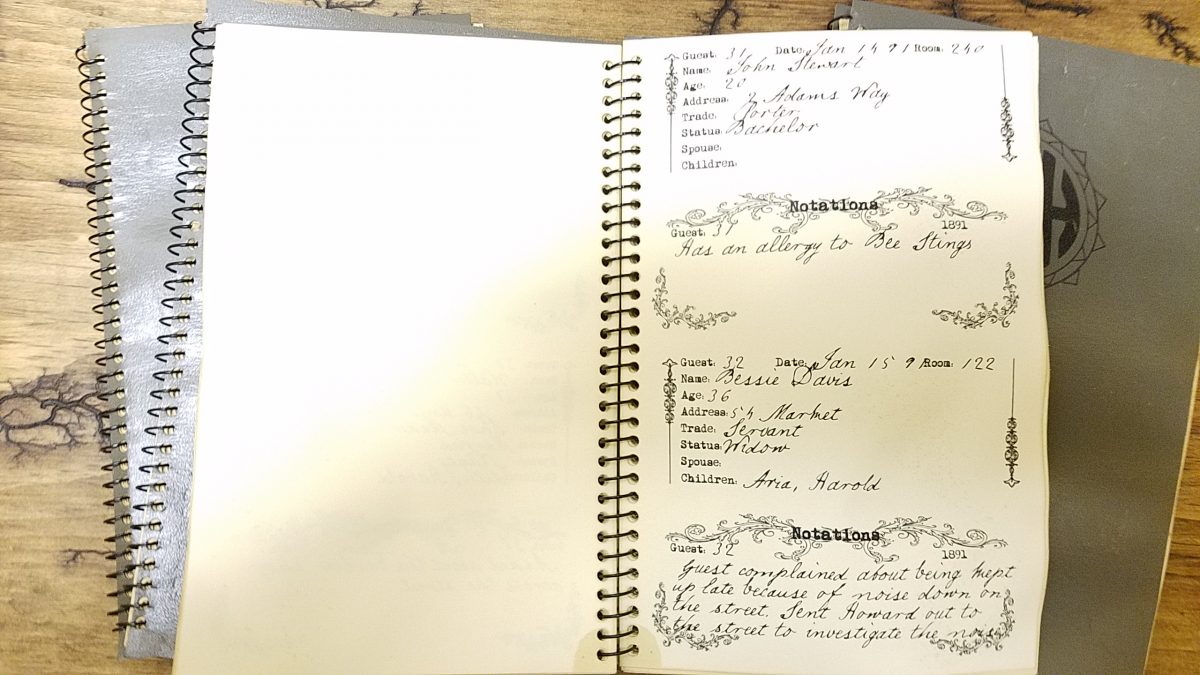 Guest: 31 Date: Jan 14 91 Room: 240
Name: John Stewart
Age: 20
Address: 2 Adams Way
Trade: Porter
Status: Bachelor
Spouse:
Children:
Notations
Guest: 31 1891
Has an allergy to Bee Stings
Guest: 32 Date: Jan 15 91 Room: 122
Name: Bessie Davis
Age: 36
Address: 54 Market
Trade: Servant
Status: Widow
Spouse:
Children: Aria, Harold
Notations
Guest: 32 1891
Guest complained about being kept
up late because of noise down on
the street. Sent Howard out to
the street to investigate the noise.